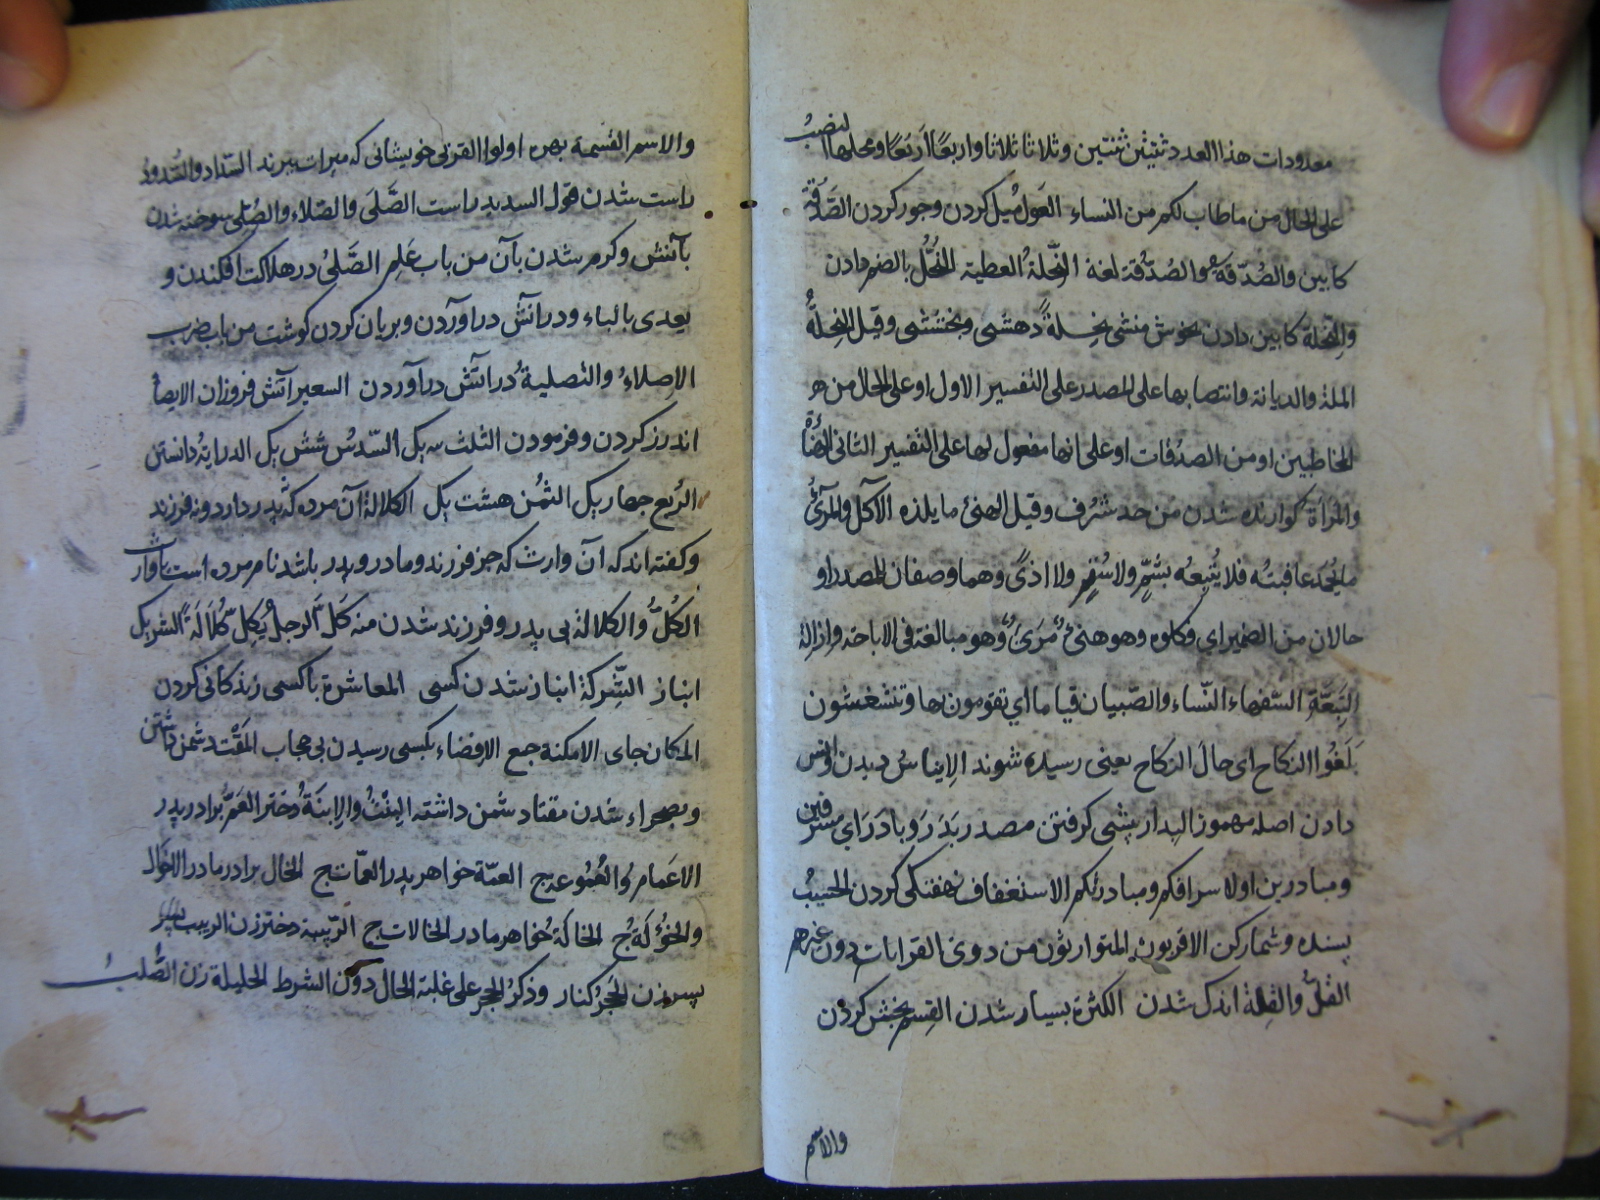 معدودات هذا العدد ثنتين ثنتين وثلاثا ثلاثا واربعًا اَربعًا ومحلها النصبُ
على الحال من ما طاب لكم من النساء العَول مُيل كردن وجور كردن الصَّدُقَة
كابين والصُدّقة والصُدُقة لغة النِّحلَة العطية النُّحْلُ بالضم دادن
والنِّحلة كابين دادن بخوش منشى نحلةً دهشى وبخششى وقيل النحلةُ
الملة والديانة وانتصابها على المصدر على التفسير الاول او على الحال من هو
المخاطبين او من الصدُقات او على انها مفعول لها على التفسير الثانى الهَنَأةُ
والمَرأة كوارنده شدن من حد شرُف وقيل الهنئ ما يلذه الآكل والمرَئُ
ما يُحمَد عاقبتُه فلا يُتبِعُه بشمٍّ ولا سُقمٍ ولا اذىً وهما وصفان للمصدر او
حالان من الضمير اي وكلوه وهو هنئٌ مرَئٌ وهو مبالغة فى الاباحة وازالة
التبِعَّةِ السّفهاء النّساء والصّبيان قياما اي تقومون بها وتنتعشون
بَلَغُوا النكاح اى حال النكاح يعنى رسيده شوند الايناس ديدن وانس
دادن اصله مهموز البدار پيشى كرفتن مصدر بَدَرَ وبادَرَ اي مسرفين
ومبادرين او لاسرافكم ومبادرتكم الاستعفاف نهفتكى كردن الحسيبُ
بسنده وشمار كن الاقربون المتوارثون من ذوى القرابات دون غيرهم
القلُّ والقلة اندك شدن الكثرة بسيار شدن القِسم بخش كردن
والاسم
والاسم القسمة بهره اولوا القربى خويشانى كه ميراث نبرند السّداد والسُّدود
راست شدن قول السديد راست الصَّلَى والصّلاء والصُّلىّ سوخته شدن
بآتش وكرم شدن بآن من باب عَلِم الصَّلىُ در هلاكت افكندن و
يعدى بالباء ودر آتش در آوردن وبريان كردن كوشت من باب ضرب
الاصلاءُ والتصليةُ در آتش در آوردن السعير آتش فروزان الايصاء
اندرز كردن وفرمودن الثلث سه يك السّدسُ شش يك الدراية دانستن
الرُبع چهار يك الثمُن هشت يك الكلالة آن مرده كه پدر دارد ونه فرزند
وكفته اند كه آن وارث كه جز فرزند ومادر وپدر باشد نام مرده است
الكلُّ والكلالة بى پدر وفرزند شدن منه كَلَّ الرجلُ يكِلُّ كَلَالَةً الشريك
انباز الشِّركة انباز شدن كسى المعاشرة با كسى زندكانى كردن
المكان جاى الامكنة جمع الافضاء بكسى رسيدن بى حجاب المَقْت دشمن داشتن
وبصحراء شدن مقتا دشمن داشته البنْتُ والابنَةُ دختر العَمّ برادر پدر
الاعمام والعُمُوم ج العمّة خواهر پدر العمّات ج الخال برادر مادر الاخوال
والخؤُلة ج الخالة خواهر مادر الخالات ج الرّبيبة دختر زن الربيب پسر
پسر زن الحِجر كنار وذكرُ الحجر على غلبة الحال دون الشرط الحليلة زن الصُّلب